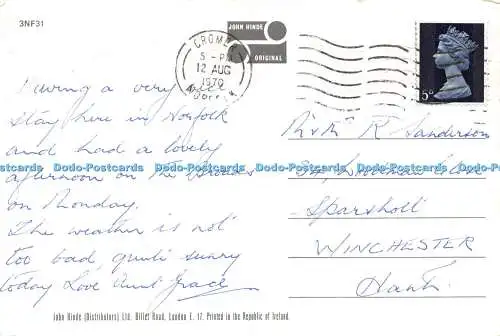 3NF31
JOHN HINDE
ORIGINAL
CROMER
5 - PM
12 AUG
1970
NORFOLK
5D
Having a very nice
stay here in Norfolk
and had a lovely
afternoon on the Broads
on Monday.
The weather is not
too bad quite sunny
today Love Aunt Grace
Mr & Mrs R Sanderson
34, Close
Sparsholt
WINCHESTER
Hants.
Dodo-Postcards Dodo-Postcards Dodo-Postcards Dodo-Postcards
John Hinde (Distributors) Ltd. Billet Road, London E. 17. Printed in the Republic of Ireland.